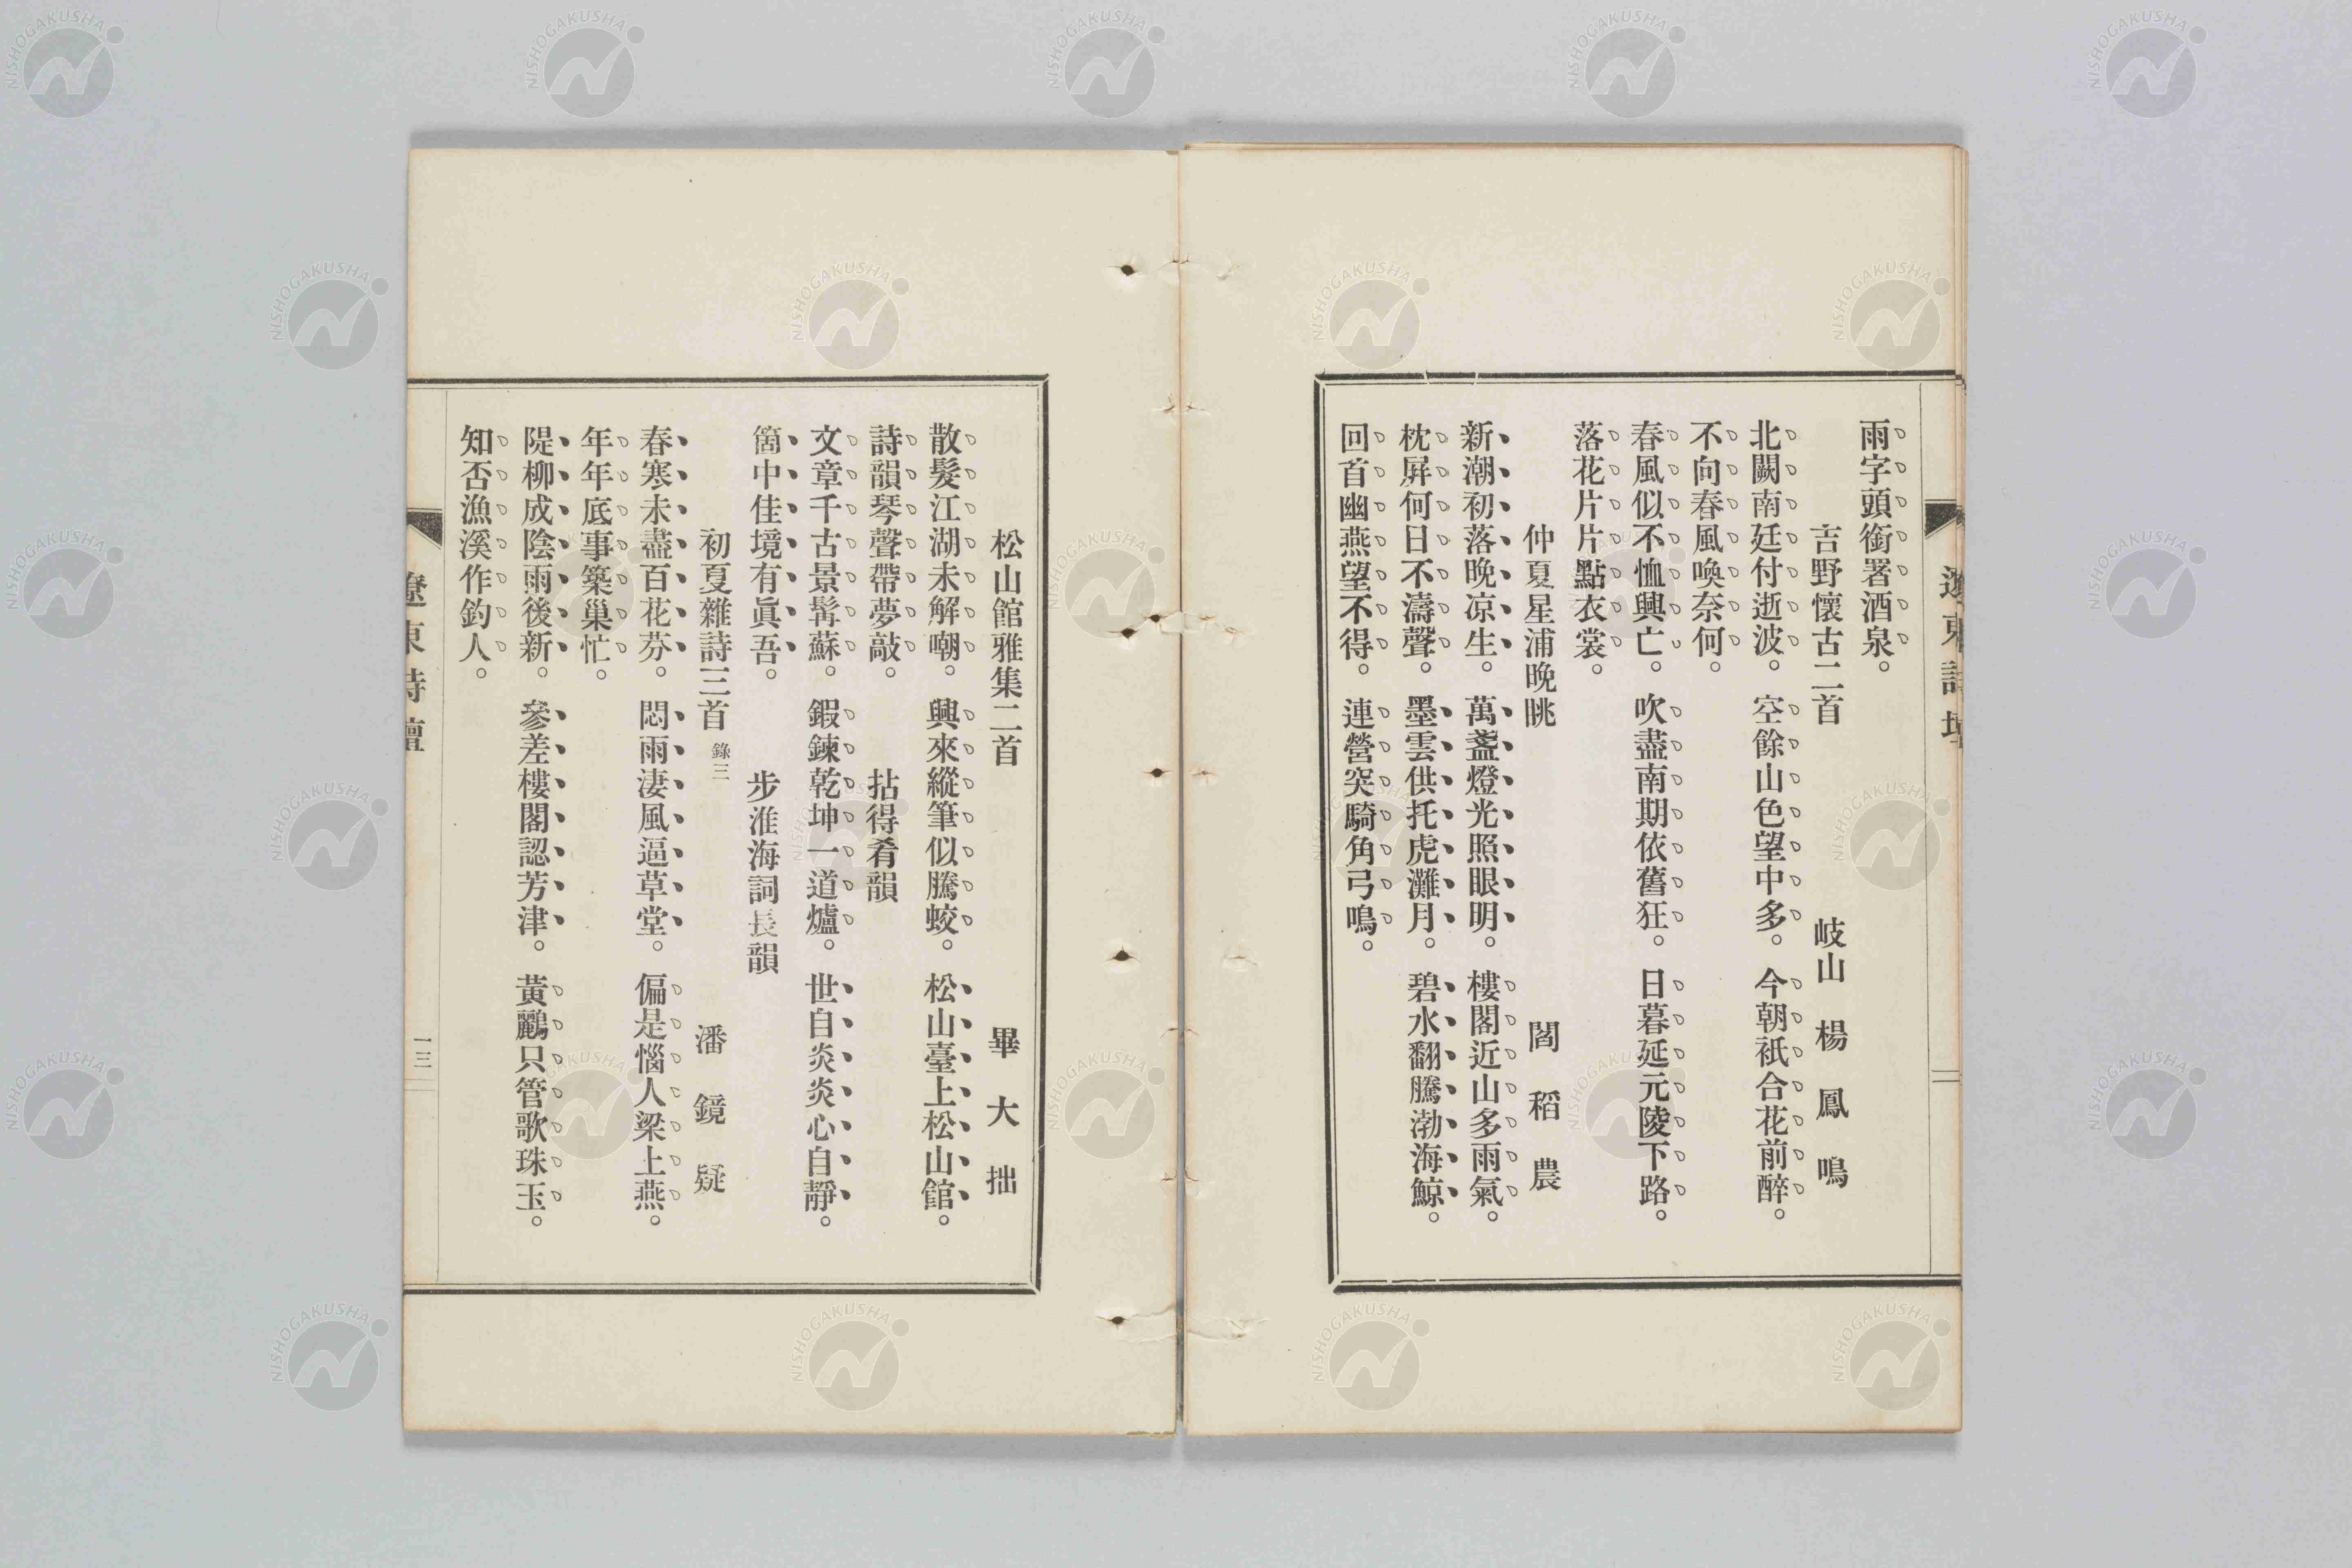 雨字頭銜署酒泉。
吉野懷古二首 岐山 楊鳳鳴
北闕南廷付逝波。空餘山色望中多。今朝祇合花前醉。
不向春風喚奈何。
春風似不恤興亡。吹盡南期依舊狂。日暮延元陵下路。
落花片片點衣裳。
仲夏星浦晚眺 閻稻農
新潮初落晚凉生。萬盞燈光照眼明。樓閣近山多雨氣。
枕屏何日不濤聲。墨雲供托虎灘月。碧水翻騰渤海鯨。
回首幽燕望不得。連營突騎角弓鳴。
遼東詩壇
松山館雅集二首 畢大拙
散髮江湖未解嘲。興來縱筆似騰蛟。松山臺上松山館。
詩韻琴聲帶夢敲。 拈得肴韻
文章千古景髯蘇。鍜鍊乾坤一道爐。世自炎炎心自靜。
箇中佳境有眞吾。 步淮海詞長韻
初夏雜詩三首 錄三 潘鏡疑
春寒未盡百花芬。悶雨淒風逼草堂。偏是惱人梁上燕。
年年底事築巢忙。
隄柳成陰雨後新。參差樓閣認芳津。黃鸝只管歌珠玉。
知否漁溪作釣人。
遼東詩壇
一三
NISHOGAKUSHA